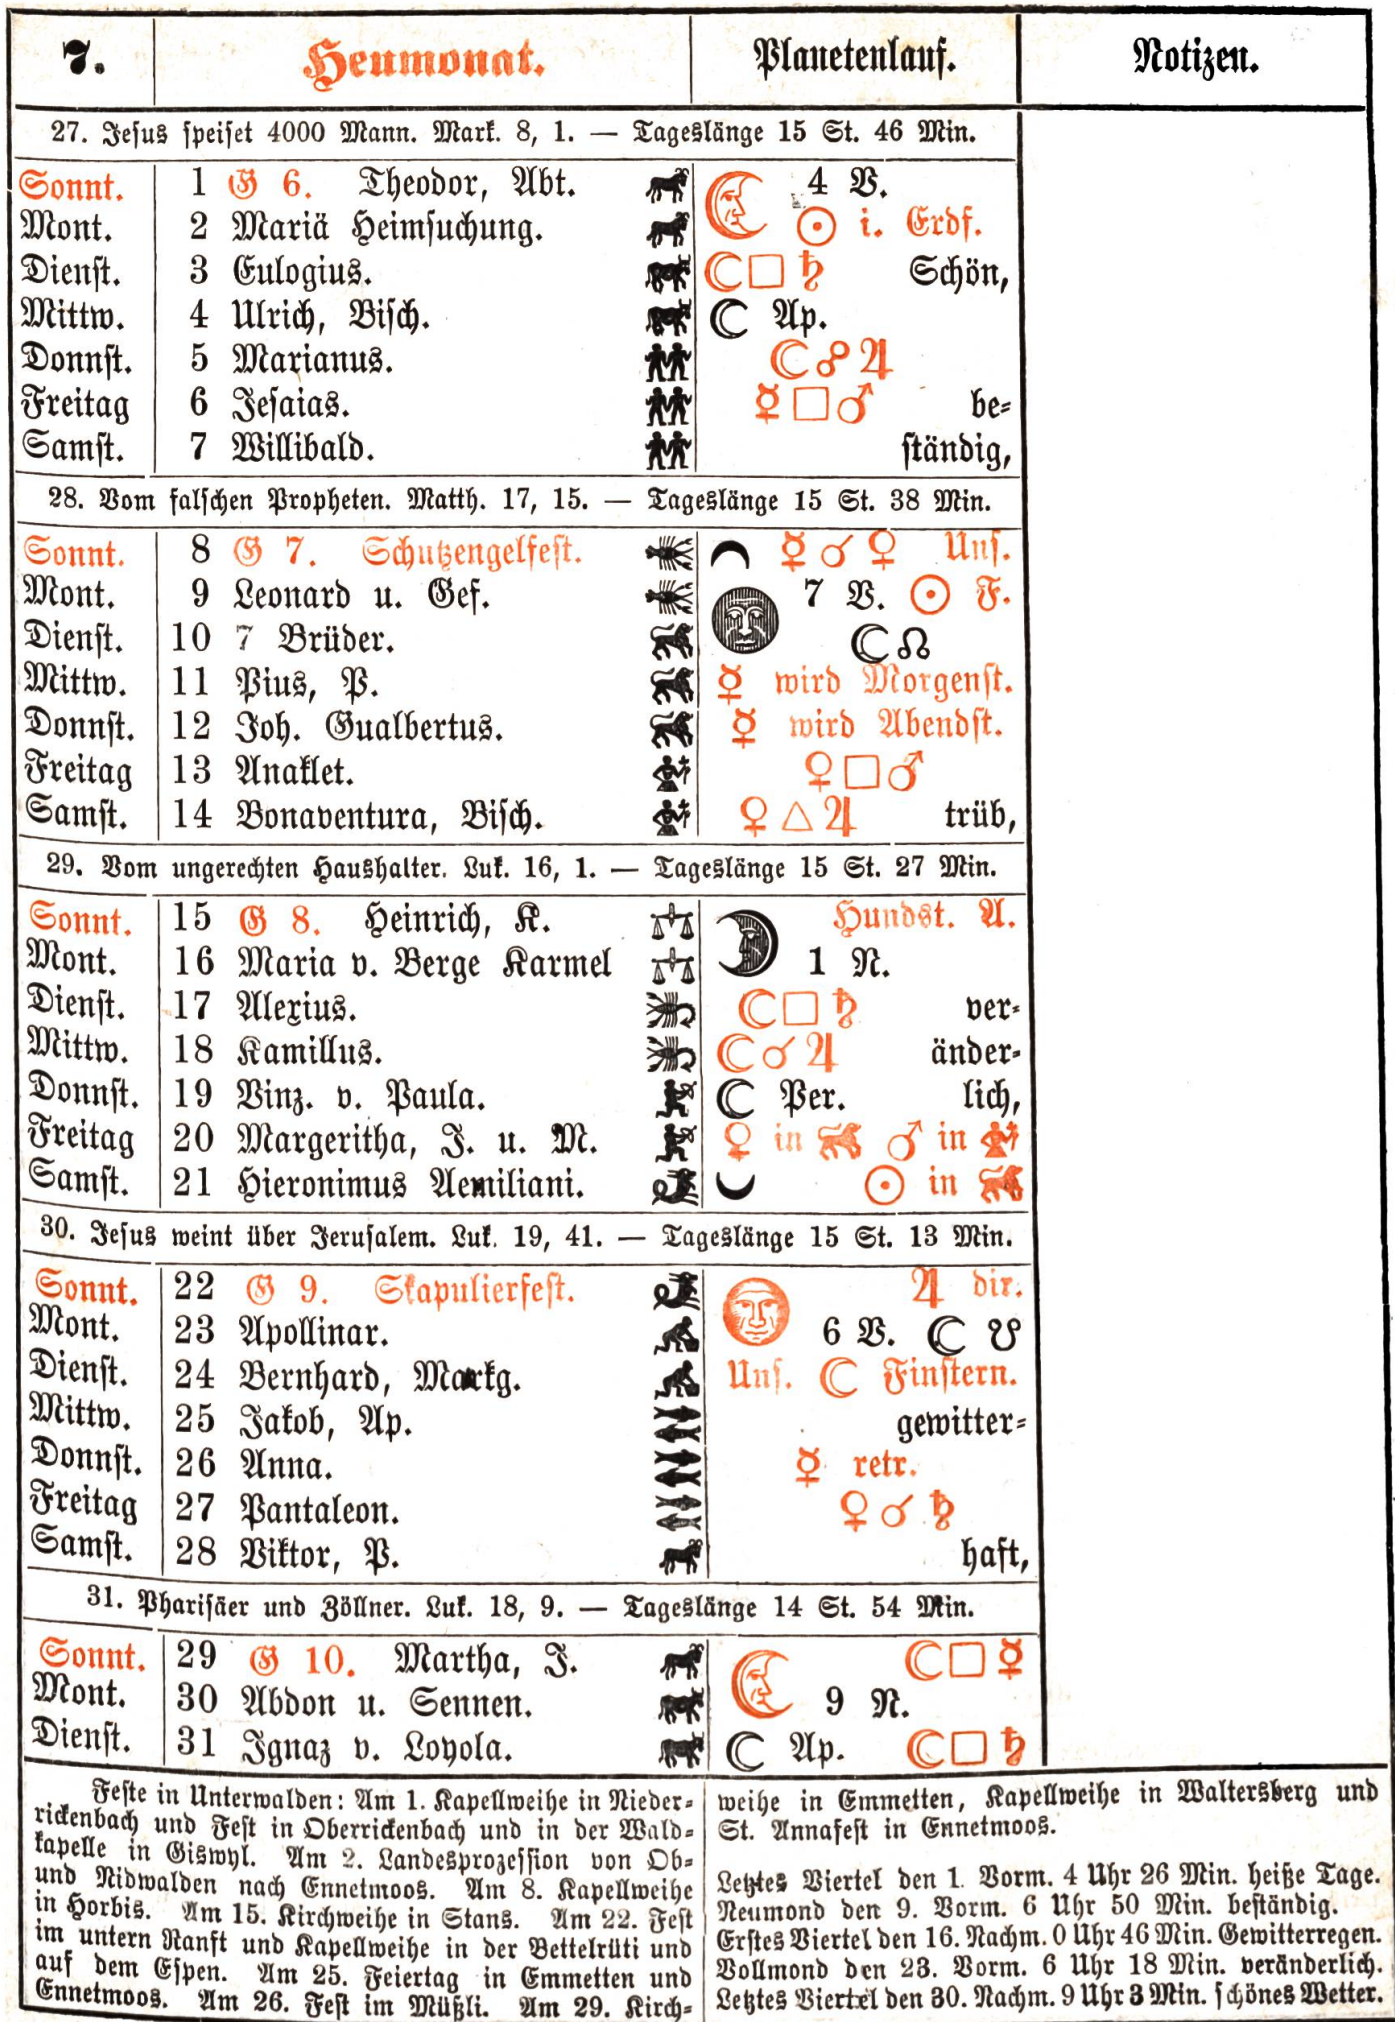 7. Heumonat. Planetenlauf. Notizen.
27. Jesus speiset 4000 Mann. Mark. 8, 1. — Tageslänge 15 St. 46 Min.
Sonnt. 1 G 6. Theodor, Abt. 4 V.
Mont. 2 Mariä Heimsuchung. ☉ i. Erdf.
Dienst. 3 Eulogius. ☾□♄ Schön,
Mittw. 4 Ulrich, Bisch. ☾ Ap.
Donnst. 5 Marianus. ☾☍♃
Freitag 6 Jesaias. ☿□♂ be=
Samst. 7 Willibald. ständig,
28. Vom falschen Propheten. Matth. 17, 15. — Tageslänge 15 St. 38 Min.
Sonnt. 8 G 7. Schutzengelfest. ☿☌♀ Uns.
Mont. 9 Leonard u. Gef. 7 V. ☉ F.
Dienst. 10 7 Brüder. ☾☊
Mittw. 11 Pius, P. ☿ wird Morgenst.
Donnst. 12 Joh. Gualbertus. ☿ wird Abendst.
Freitag 13 Anaklet. ♀□♂
Samst. 14 Bonaventura, Bisch. ♀△♃ trüb,
29. Vom ungerechten Haushalter. Luk. 16, 1. — Tageslänge 15 St. 27 Min.
Sonnt. 15 G 8. Heinrich, K. Hundst. A.
Mont. 16 Maria v. Berge Karmel 1 N.
Dienst. 17 Alexius. ☾□♄ ver=
Mittw. 18 Kamillus. ☾☌♃ änder=
Donnst. 19 Vinz. v. Paula. ☾ Per. lich,
Freitag 20 Margeritha, J. u. M. ♀ in ♂ in
Samst. 21 Hieronimus Aemiliani. ☉ in
30. Jesus weint über Jerusalem. Luk. 19, 41. — Tageslänge 15 St. 13 Min.
Sonnt. 22 G 9. Skapulierfest. ♃ dir.
Mont. 23 Apollinar. 6 V. ☾ ☋
Dienst. 24 Bernhard, Markg. Uns. ☾ Finstern.
Mittw. 25 Jakob, Ap. gewitter=
Donnst. 26 Anna. ☿ retr.
Freitag 27 Pantaleon. ♀☌♄
Samst. 28 Viktor, P. haft,
31. Pharisäer und Zöllner. Luk. 18, 9. — Tageslänge 14 St. 54 Min.
Sonnt. 29 G 10. Martha, J. ☾□☿
Mont. 30 Abdon u. Sennen. 9 N.
Dienst. 31 Ignaz v. Loyola. ☾ Ap. ☾□♄
Feste in Unterwalden: Am 1. Kapellweihe in Nieder=
rickenbach und Fest in Oberrickenbach und in der Wald=
kapelle in Giswyl. Am 2. Landesprozession von Ob=
und Nidwalden nach Ennetmoos. Am 8. Kapellweihe
in Horbis. Am 15. Kirchweihe in Stans. Am 22. Fest
im untern Ranft und Kapellweihe in der Bettelrüti und
auf dem Espen. Am 25. Feiertag in Emmetten und
Ennetmoos. Am 26. Fest im Müßli. Am 29. Kirch=
weihe in Emmetten, Kapellweihe in Waltersberg und
St. Annafest in Ennetmoos.
Letztes Viertel den 1. Vorm. 4 Uhr 26 Min. heiße Tage.
Neumond den 9. Vorm. 6 Uhr 50 Min. beständig.
Erstes Viertel den 16. Nachm. 0 Uhr 46 Min. Gewitterregen.
Vollmond den 23. Vorm. 6 Uhr 18 Min. veränderlich.
Letztes Viertel den 30. Nachm. 9 Uhr 3 Min. schönes Wetter.